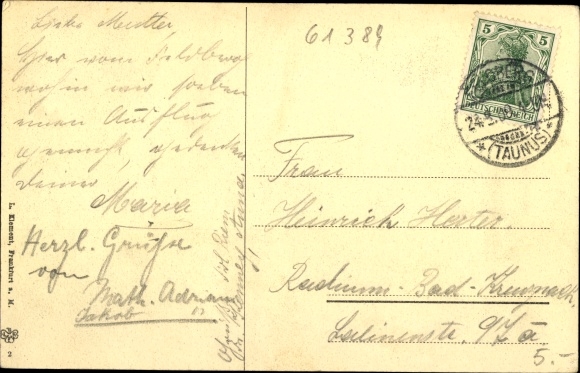 Liebe Mutter,
Hier vom Feldberg
wohin wir soeben
einen Ausflug
gemacht, gedenken
Deiner
Maria
Herzl. Grüsse
von
Math. Adrian
Jakob
L. Klement, Frankfurt a. M.
2
61384
5 5
DEUTSCHES REICH
24.5.
* (TAUNUS) *
Frau
Heinrich Herter.
Radium-Bad-Kreuznach.
Salinenstr.
5.-